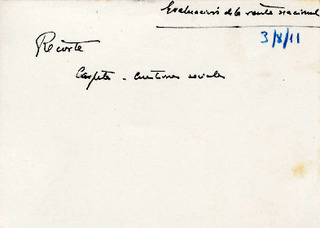 Evaluación de la renta nacional
3/8/11
Recorte
Carpeta - Cuestiones sociales